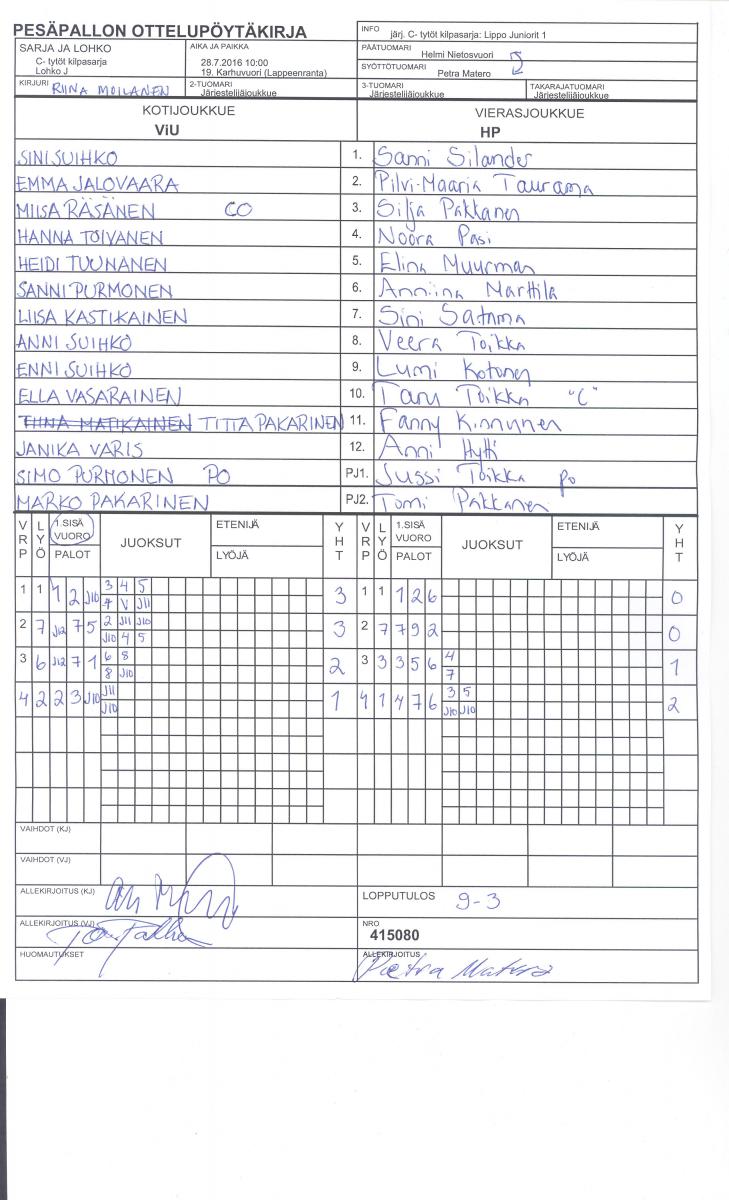 PESÄPALLON OTTELUPÖYTÄKIRJA
INFO järj. C- tytöt kilpasarja: Lippo Juniorit 1
SARJA JA LOHKO
C- tytöt kilpasarja
Lohko J
AIKA JA PAIKKA
28.7.2016 10:00
19. Karhuvuori (Lappeenranta)
PÄÄTUOMARI Helmi Nietosvuori
SYÖTTÖTUOMARI Petra Matero
KIRJURI RIINA MOILANEN
2-TUOMARI Järjestelijäjoukkue
3-TUOMARI Järjestelijäjoukkue
TAKARAJATUOMARI Järjestelijäjoukkue
KOTIJOUKKUE VIERASJOUKKUE
ViU HP
SINI SUIHKO 1. Sanni Silander
EMMA JALOVAARA 2. Pilvi-Maaria Taurama
MIISA RÄSÄNEN CO 3. Silja Pakkanen
HANNA TOIVANEN 4. Noora Pasi
HEIDI TUUNANEN 5. Elina Muurman
SANNI PURMONEN 6. Anniina Marttila
LIISA KASTIKAINEN 7. Sini Satama
ANNI SUIHKO 8. Veera Toikka
ENNI SUIHKO 9. Lumi Kotonen
ELLA VASARAINEN 10. Taru Toikka "C"
TIINA MATIKAINEN TITTA PAKARINEN 11. Fanny Kinnunen
JANIKA VARIS 12. Anni Hytti
SIMO PURMONEN PO PJ1. Jussi Toikka po
MARKO PAKARINEN PJ2. Tomi Pakkanen
VRP LYÖ 1.SISÄ VUORO PALOT JUOKSUT ETENIJÄ LYÖJÄ YHT VRP LYÖ 1.SISÄ VUORO PALOT JUOKSUT ETENIJÄ LYÖJÄ YHT
3 4 5
1 1 1 2 J10 3 1 1 1 2 6 0
7 V J11
2 J11 J10
2 7 J12 7 5 3 2 7 7 9 2 0
J10 4 5
6 8 4
3 6 J12 7 1 2 3 3 3 5 6 1
8 J10 7
J11 3 5
4 2 2 3 J10 1 4 1 4 7 6 2
J10 J10 J10
VAIHDOT (KJ)
VAIHDOT (VJ)
ALLEKIRJOITUS (KJ)
LOPPUTULOS 9-3
ALLEKIRJOITUS (VJ)
NRO
415080
HUOMAUTUKSET
ALLEKIRJOITUS Petra Matero